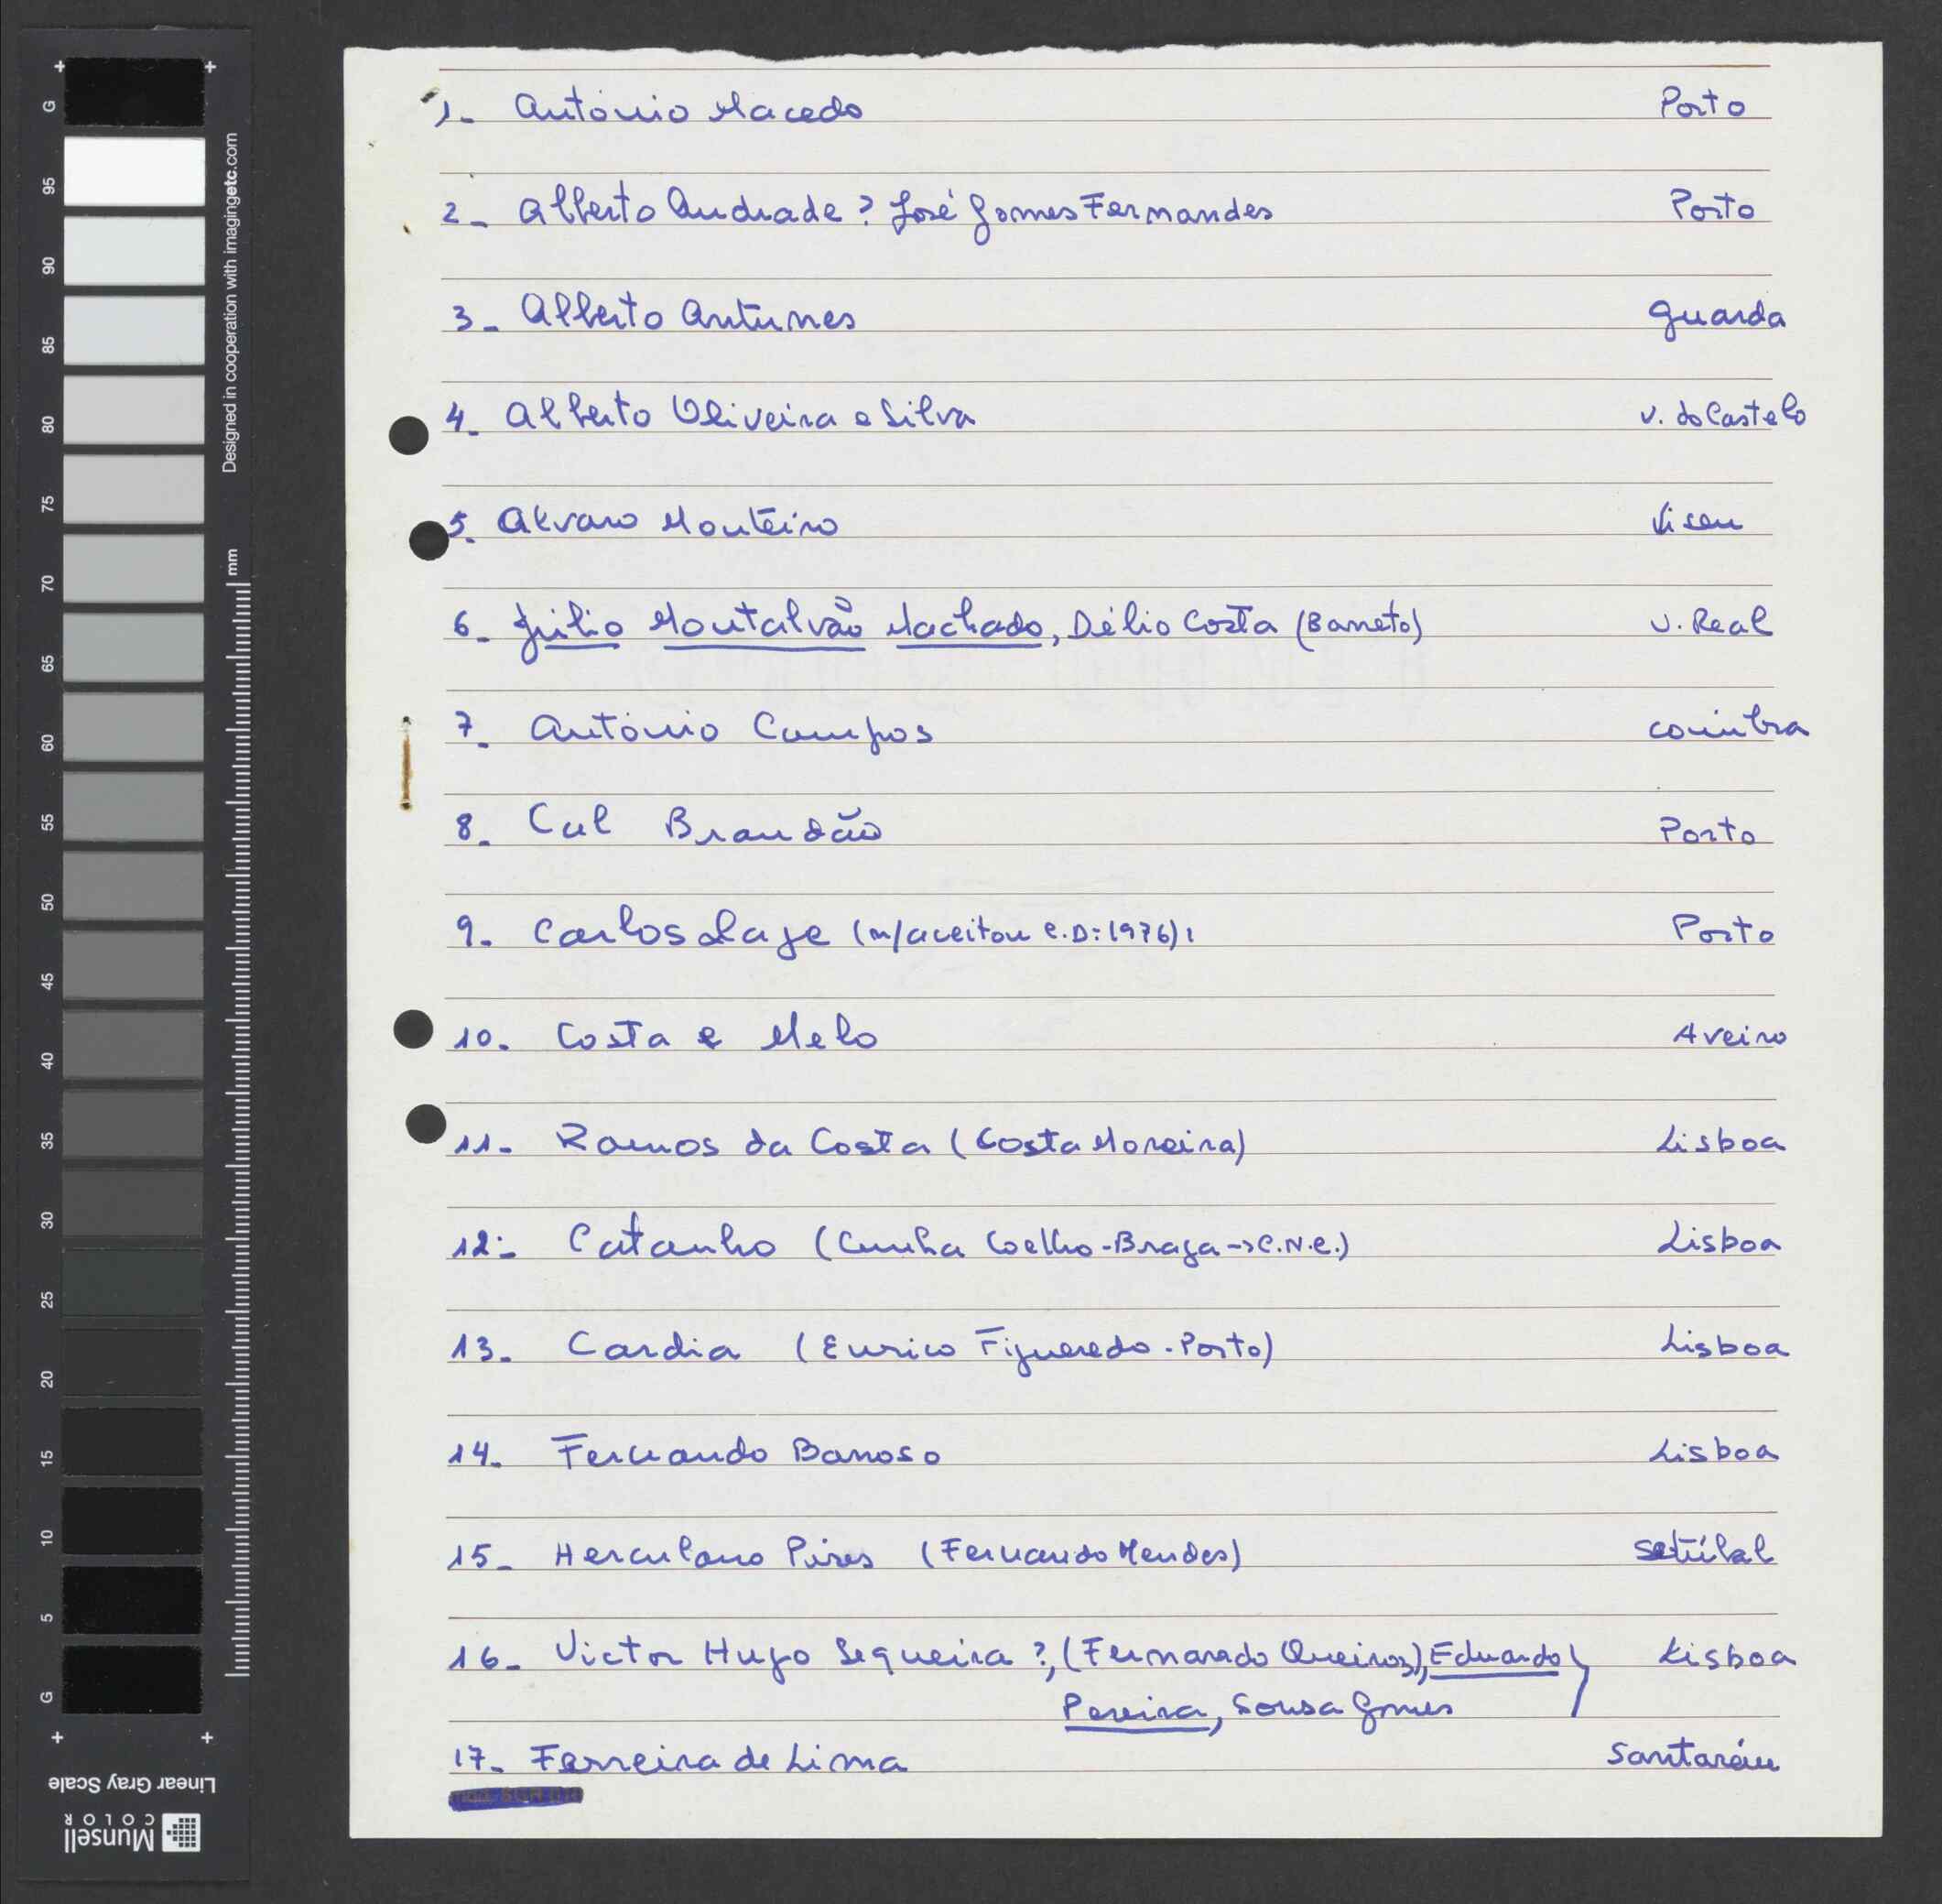 1- António Macedo Porto
2- Alberto Andrade? José Gomes Fernandes Porto
3- Alberto Antunes Guarda
4- Alberto Oliveira e Silva V. do Castelo
5. Alvaro Monteiro Viseu
6- Júlio Montalvão Machado, Délio Costa (Barreto) V. Real
7. António Campos Coimbra
8. Cal Brandão Porto
9. Carlos Laje (n/aceitou C.D: 1976) Porto
10. Costa e Melo Aveiro
11- Ramos da Costa (Costa Moreira) Lisboa
12- Catanho (Cunha Coelho-Braga->C.N.C.) Lisboa
13- Cardia (Eurico Figueredo-Porto) Lisboa
14. Fernando Barroso Lisboa
15- Herculano Pires (Fernando Mendes) Setúbal
16- Victor Hugo Sequeira?, (Fernando Queiroz), Eduardo Lisboa
Pereira, Sousa Gomes
17- Ferreira de Lima Santarém
G 95 90 85 80 75 70 65 60 55 50 45 40 35 30 25 20 15 10 5 G
Designed in cooperation with imagingetc.com
mm
Linear Gray Scale
Munsell
COLOR